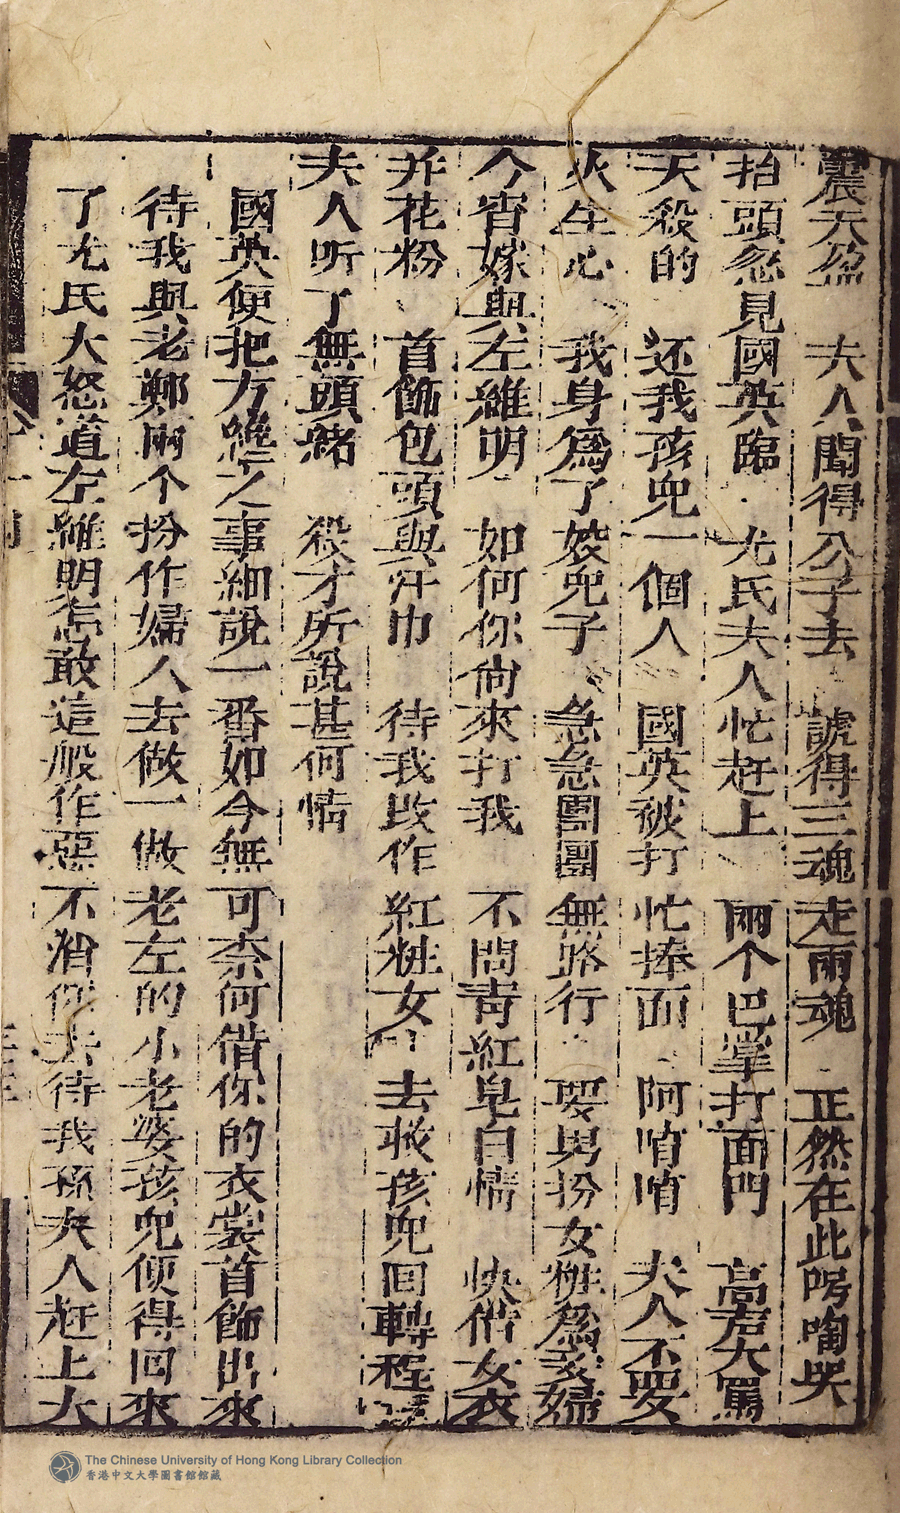 震天盈　夫人聞得公子去　諕得三魂走兩魂　正然在此㕵啕哭
抬頭忽見國英臨　尤氏夫人忙赶上　兩个巴掌打面門　高声大罵
天殺的　还我孩兜一個人　國英被打忙捧面　阿唷唷　夫人不要
火生心　我身爲了姣兜子　急急團團無路行　要男扮女粧爲婦
今宵嫁與左維明　如何你尙來打我　不問青紅皂白情　快借女衣
并花粉　首飾包頭與汗巾　待我改作紅粧女　去救孩兜回轉程
夫人听了無頭緒　殺才所說甚何情
國英便把方纔之事細說一番如今無可奈何借你的衣裳首飾出來
待我與老鄭兩个扮作婦人去做一做老左的小老婆孩兜便得回來
了尤氏大怒道左維明怎敢這般作惡不消你去待我孫夫人赶上大
The Chinese University of Hong Kong Library Collection
香港中文大學圖書館館藏